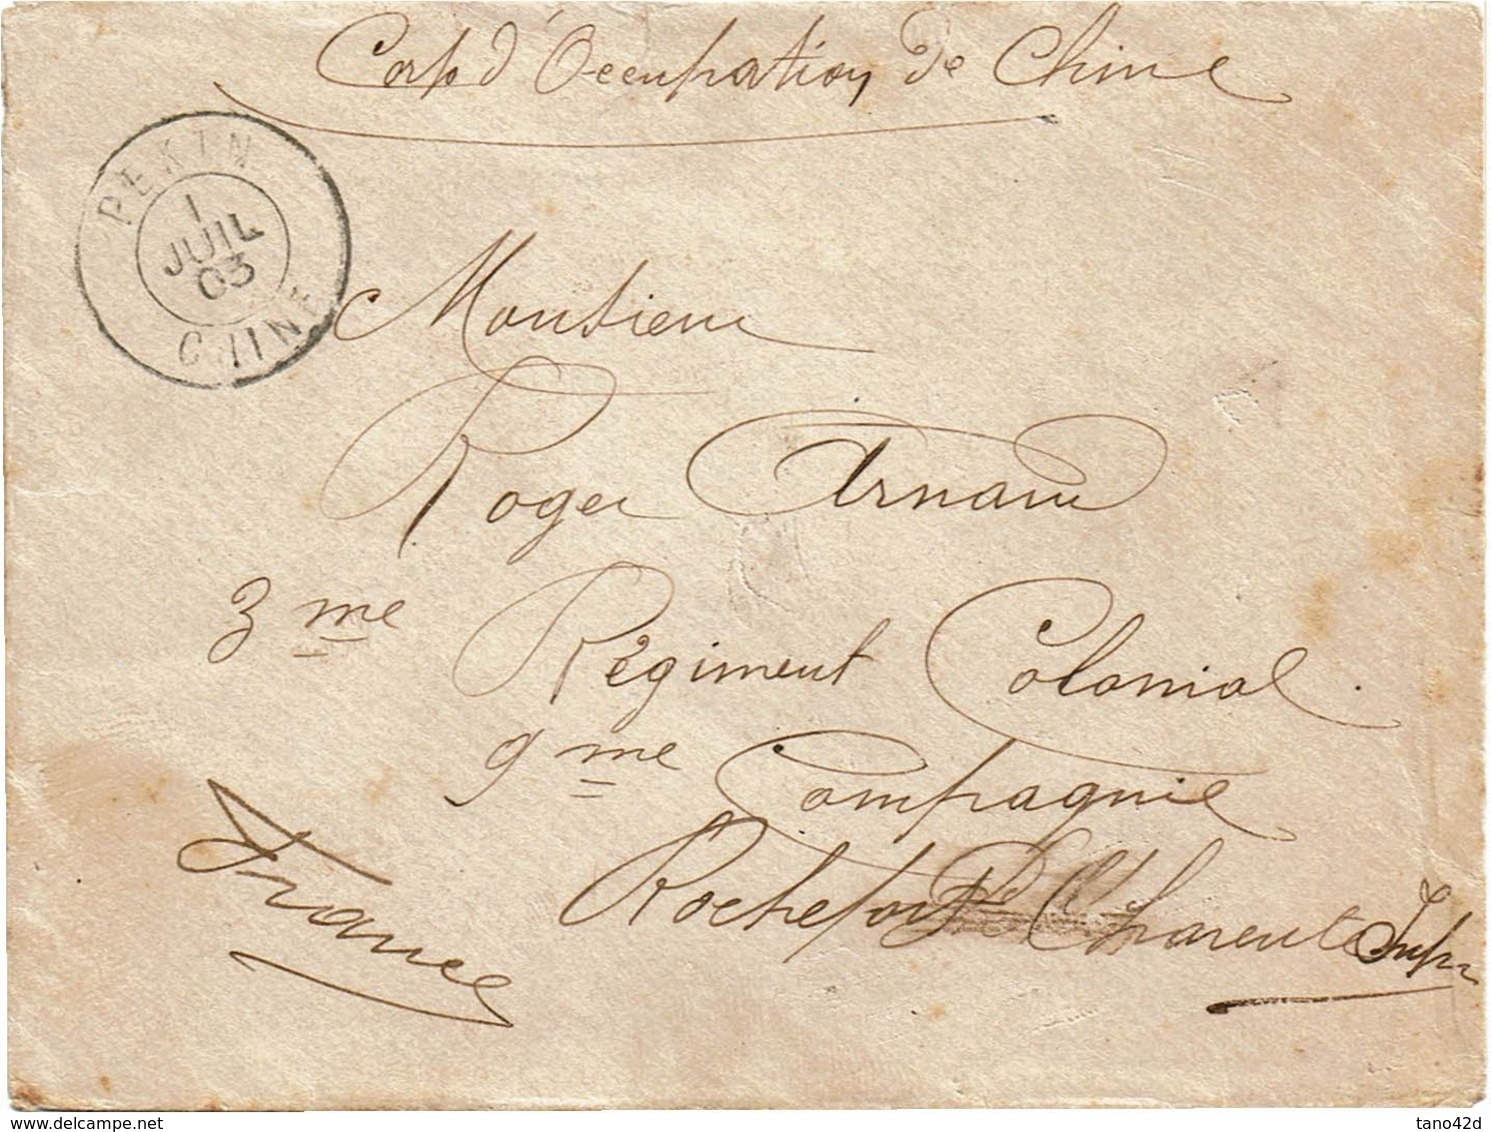 Corps d'Occupation de Chine
PEKIN
1
JUIL
03
CHINE
Monsieur
Roger Arnaud
3me Régiment Colonial
9me Compagnie
Rochefort Charente Infre
France
www.delcampe.net
tano42d